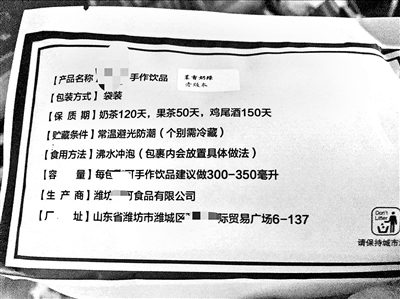 【产品名称】 手作饮品
【包装方式】袋装
【保 质 期】奶茶120天，果茶50天，鸡尾酒150天
【贮藏条件】常温避光防潮（个别需冷藏）
【食用方法】沸水冲泡（包裹内会放置具体做法）
【容 量】每包 可手作饮品建议做300-350毫升
【生 产 商】潍坊 可食品有限公司
【厂 址】山东省潍坊市潍城区 际贸易广场6-137
Don't Litter
请保持城市